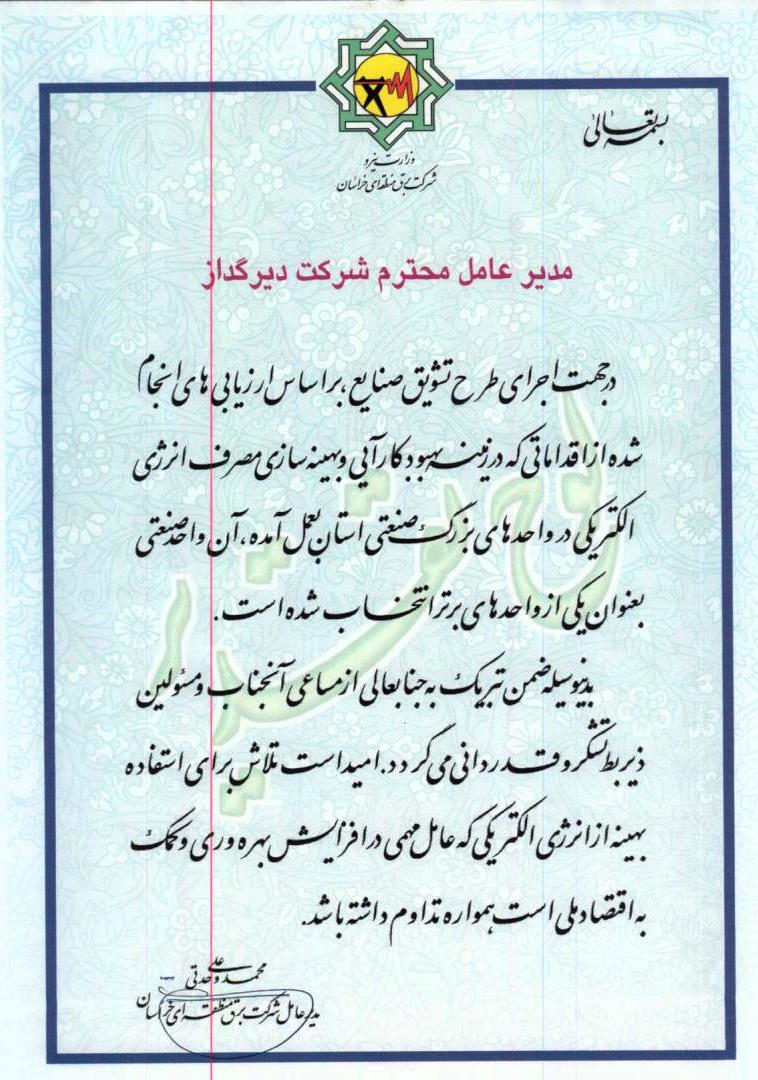 بسمه تعالی
وزارت نیرو
شرکت برق منطقه‌ای خراسان
مدیر عامل محترم شرکت دیرگداز
درجهت اجرای طرح تشویق صنایع، براساس ارزیابی های انجام
شده از اقداماتی که در زمینه بهبود کارآیی و بهینه سازی مصرف انرژی
الکتریکی در واحدهای بزرگ صنعتی استان بعمل آمده، آن واحد صنعتی
بعنوان یکی از واحدهای برتر انتخاب شده است.
بدینوسیله ضمن تبریک به جنابعالی از مساعی آنجناب و مسئولین
ذیربط تشکر و قدردانی می گردد. امید است تلاش برای استفاده
بهینه از انرژی الکتریکی که عامل مهمی در افزایش بهره وری و کمک
به اقتصاد ملی است همواره تداوم داشته باشد.
لوح تقدیر
محمدعلی وحدتی
مدیر عامل شرکت برق منطقه ای خراسان